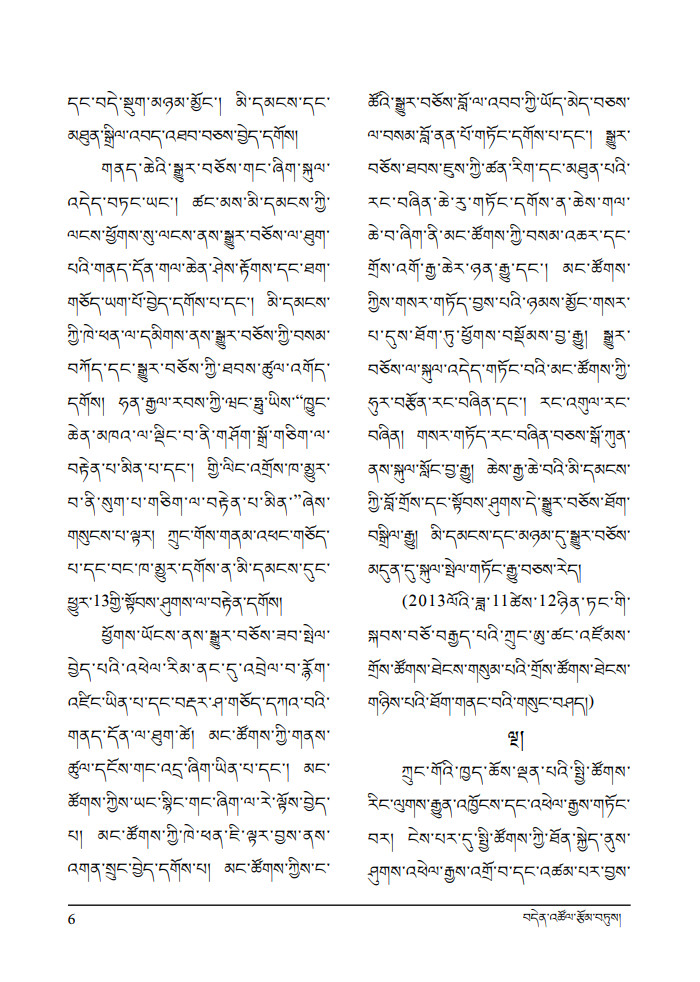 དང་བདེ་སྡུག་མཉམ་མྱོང་། མི་དམངས་དང་
མཐུན་སྒྲིལ་འབད་འཐབ་བཅས་བྱེད་དགོས།
གནད་ཆེའི་སྒྱུར་བཅོས་གང་ཞིག་སྐུལ་
འདེད་བཏང་ཡང་། ཚང་མས་མི་དམངས་ཀྱི་
ལངས་ཕྱོགས་སུ་ལངས་ནས་སྒྱུར་བཅོས་ལ་ཐུག་
པའི་གནད་དོན་གལ་ཆེན་ཤེས་རྟོགས་དང་ཐག་
གཅོད་ཡག་པོ་བྱེད་དགོས་པ་དང་། མི་དམངས་
ཀྱི་ཁེ་ཕན་ལ་དམིགས་ནས་སྒྱུར་བཅོས་ཀྱི་བསམ་
བཀོད་དང་སྒྱུར་བཅོས་ཀྱི་ཐབས་ཚུལ་འགོད་
དགོས། ཧན་རྒྱལ་རབས་ཀྱི་ཝང་ཧྥུ་ཡིས་“ཁྱུང་
ཆེན་མཁའ་ལ་ལྡིང་བ་ནི་གཤོག་སྒྲོ་གཅིག་ལ་
བརྟེན་པ་མིན་པ་དང་། གྱི་ལིང་འགྲོས་ཁ་མྱུར་
བ་ནི་སུག་པ་གཅིག་ལ་བརྟེན་པ་མིན་”ཞེས་
གསུངས་པ་ལྟར། ཀྲུང་གོས་གནམ་འཕང་གཅོད་
པ་དང་བང་ཁ་མྱུར་དགོས་ན་མི་དམངས་དུང་
ཕྱུར་13གྱི་སྟོབས་ཤུགས་ལ་བརྟེན་དགོས།
ཕྱོགས་ཡོངས་ནས་སྒྱུར་བཅོས་ཟབ་སྤེལ་
བྱེད་པའི་འཕེལ་རིམ་ནང་དུ་འབྲེལ་བ་རྙོག་
འཛིང་ཡིན་པ་དང་བརྡར་ཤ་གཅོད་དཀའ་བའི་
གནད་དོན་ལ་ཐུག་ཚེ། མང་ཚོགས་ཀྱི་གནས་
ཚུལ་དངོས་གང་འདྲ་ཞིག་ཡིན་པ་དང་། མང་
ཚོགས་ཀྱིས་ཡང་སྙིང་གང་ཞིག་ལ་རེ་ལྟོས་བྱེད་
པ། མང་ཚོགས་ཀྱི་ཁེ་ཕན་ཇི་ལྟར་བྱས་ནས་
འགན་སྲུང་བྱེད་དགོས་པ། མང་ཚོགས་ཀྱིས་ང་
ཚོའི་སྒྱུར་བཅོས་བློ་ལ་འབབ་ཀྱི་ཡོད་མེད་བཅས་
ལ་བསམ་བློ་ནན་པོ་གཏོང་དགོས་པ་དང་། སྒྱུར་
བཅོས་ཐབས་ཇུས་ཀྱི་ཚན་རིག་དང་མཐུན་པའི་
རང་བཞིན་ཆེ་རུ་གཏོང་དགོས་ན་ཆེས་གལ་
ཆེ་བ་ཞིག་ནི་མང་ཚོགས་ཀྱི་བསམ་འཆར་དང་
གྲོས་འགོ་རྒྱ་ཆེར་ཉན་རྒྱུ་དང་། མང་ཚོགས་
ཀྱིས་གསར་གཏོད་བྱས་པའི་ཉམས་མྱོང་གསར་
པ་དུས་ཐོག་ཏུ་ཕྱོགས་བསྡོམས་བྱ་རྒྱུ། སྒྱུར་
བཅོས་ལ་སྐུལ་འདེད་གཏོང་བའི་མང་ཚོགས་ཀྱི་
ཧུར་བརྩོན་རང་བཞིན་དང་། རང་འགུལ་རང་
བཞིན། གསར་གཏོད་རང་བཞིན་བཅས་སྒོ་ཀུན་
ནས་སྐུལ་སློང་བྱ་རྒྱུ། ཆེས་རྒྱ་ཆེ་བའི་མི་དམངས་
ཀྱི་བློ་གྲོས་དང་སྟོབས་ཤུགས་དེ་སྒྱུར་བཅོས་ཐོག་
བསྒྲིལ་རྒྱུ། མི་དམངས་དང་མཉམ་དུ་སྒྱུར་བཅོས་
མདུན་དུ་སྐུལ་སྤེལ་གཏོང་རྒྱུ་བཅས་རེད།
(2013ལོའི་ཟླ་11ཚེས་12ཉིན་ཏང་གི་
སྐབས་བཅོ་བརྒྱད་པའི་ཀྲུང་ཨུ་ཚང་འཛོམས་
གྲོས་ཚོགས་ཐེངས་གསུམ་པའི་གྲོས་ཚོགས་ཐེངས་
གཉིས་པའི་ཐོག་གནང་བའི་གསུང་བཤད།)
ལྔ།
ཀྲུང་གོའི་ཁྱད་ཆོས་ལྡན་པའི་སྤྱི་ཚོགས་
རིང་ལུགས་རྒྱུན་འཁྱོངས་དང་འཕེལ་རྒྱས་གཏོང་
བར། ངེས་པར་དུ་སྤྱི་ཚོགས་ཀྱི་ཐོན་སྐྱེད་ནུས་
ཤུགས་འཕེལ་རྒྱས་འགྲོ་བ་དང་འཚམ་པར་བྱས་
6
བདེན་འཚོལ་རྩོམ་བཏུས།